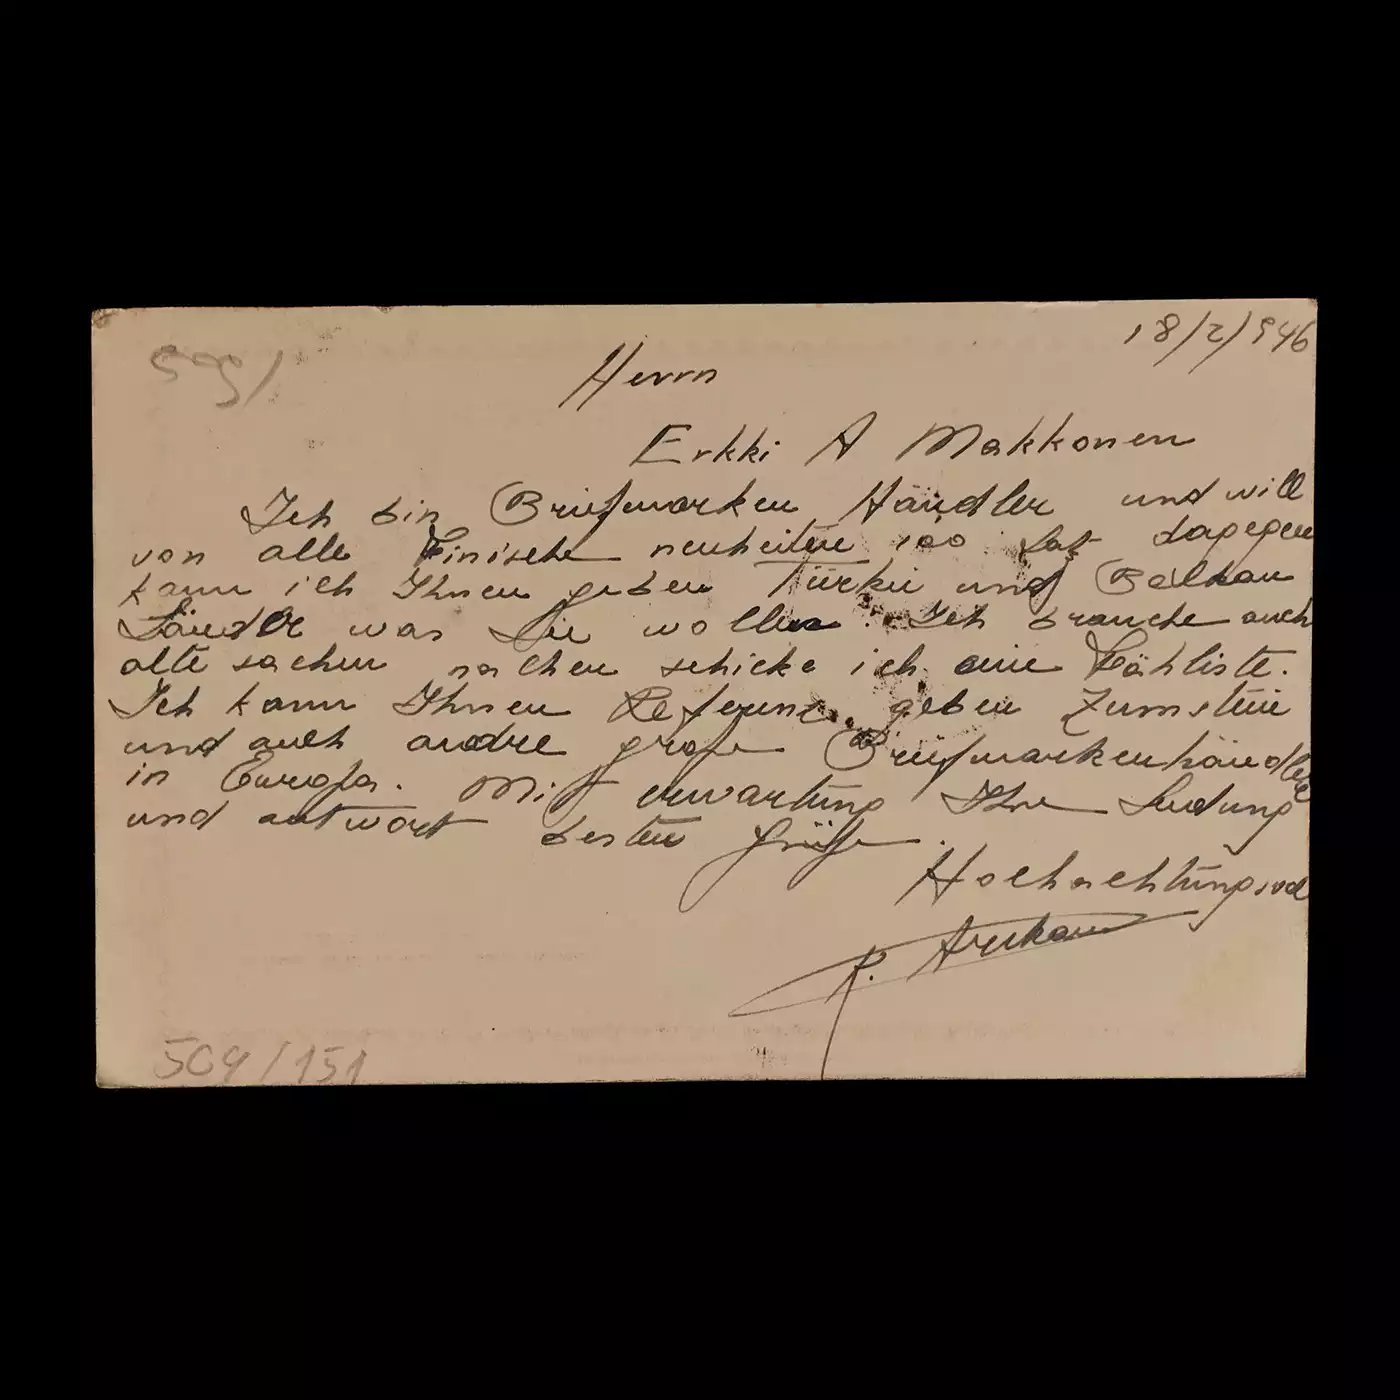 18/2/946
Herrn
Erkki A Makkonen
Ich bin Briefmarken Händler und will
von alle Finische neuheiten 100 Satz dagegen
kann ich Ihnen geben Türkei und Balkan
Länder was Sie wollen. Ich brauche auch
alte sachen solchen schicke ich eine Fähliste.
Ich kann Ihnen Referenz geben Zumstein
und auch andre große Briefmarkenhändler
in Europa. Mit erwartung Ihre Sendung
und antwort besten Grüße.
Hochachtungsvol
509/151